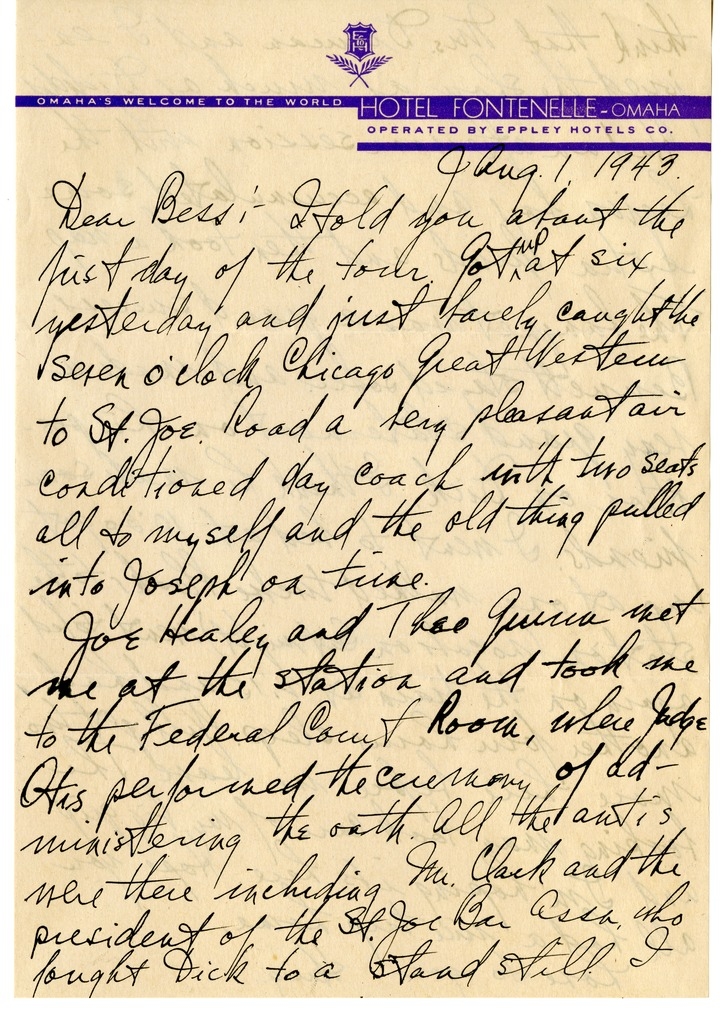 OMAHA'S WELCOME TO THE WORLD
HOTEL FONTENELLE-OMAHA
OPERATED BY EPPLEY HOTELS CO.
Aug. 1, 1943.
Dear Bess:- I told you about the
first day of the tour. Got up at six
yesterday and just barely caught the
seven o'clock Chicago Great Western
to St. Joe. Road a very pleasant air
conditioned day coach with two seats
all to myself and the old thing pulled
into Joseph on time.
Joe Healey and Theo Quinn met
me at the station and took me
to the Federal Court Room, where Judge
Otis performed the ceremony of ad-
ministering the oath. All the antis
were there including Mr. Clark and the
president of the St. Joe Bar Assn. who
fought Dick to a stand still. I